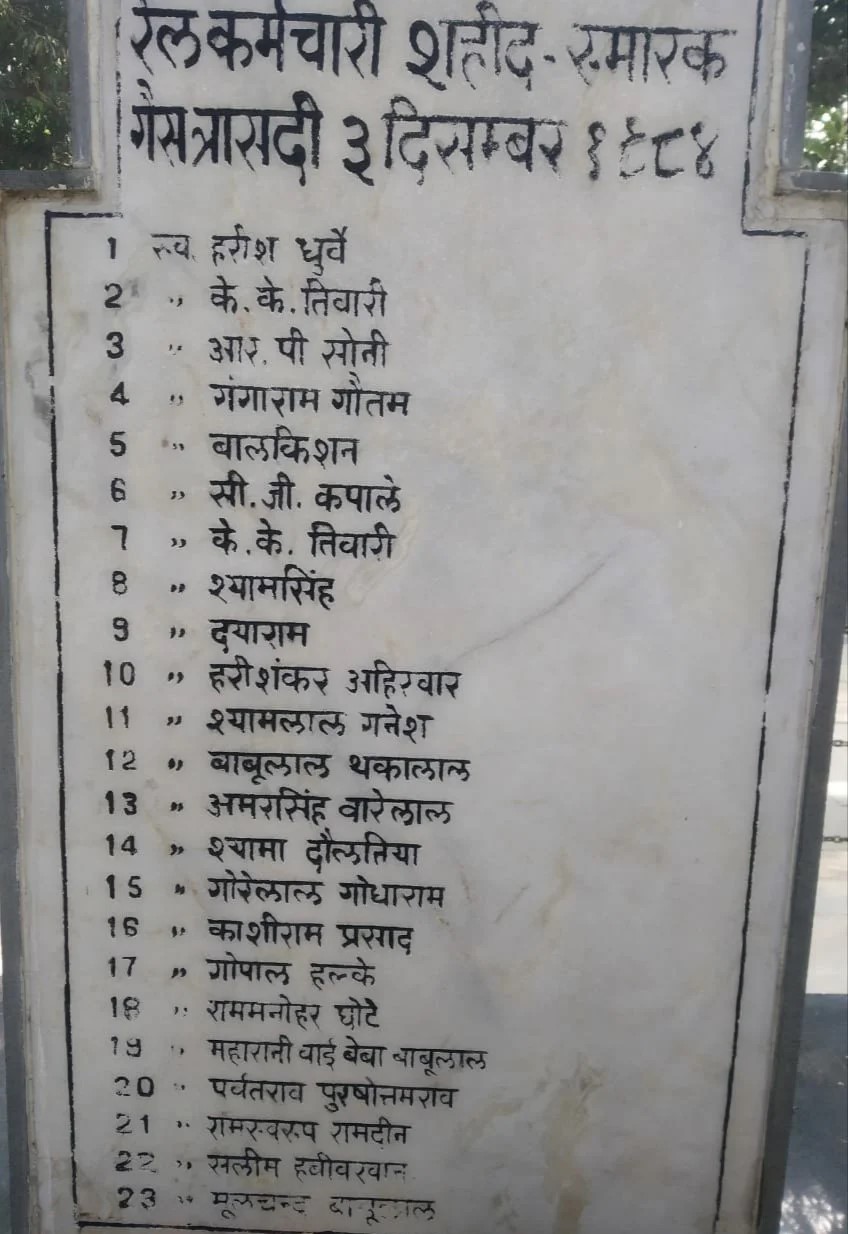 रेल कर्मचारी शहीद-स्मारक
गैस त्रासदी ३ दिसम्बर १९८४
1 स्व. हरीश धुर्वे
2 ,, के.के.तिवारी
3 ,, आर. पी सोनी
4 ,, गंगाराम गौतम
5 ,, बालकिशन
6 ,, सी.जी. कपाले
7 ,, के.के. तिवारी
8 ,, श्यामसिंह
9 ,, दयाराम
10 ,, हरीशंकर अहिरवार
11 ,, श्यामलाल गनेश
12 ,, बाबूलाल थकालाल
13 ,, अमरसिंह वारेलाल
14 ,, श्यामा दौलतिया
15 ,, गोरेलाल गोधाराम
16 ,, काशीराम प्रसाद
17 ,, गोपाल हल्के
18 ,, राममनोहर घोटे
19 ,, महारानी वाई बेबा बाबूलाल
20 ,, पर्वतराव पुरषोत्तमराव
21 ,, रामस्वरुप रामदीन
22 ,, सलीम हवीवखान
23 ,, मूलचन्द बाबूलाल